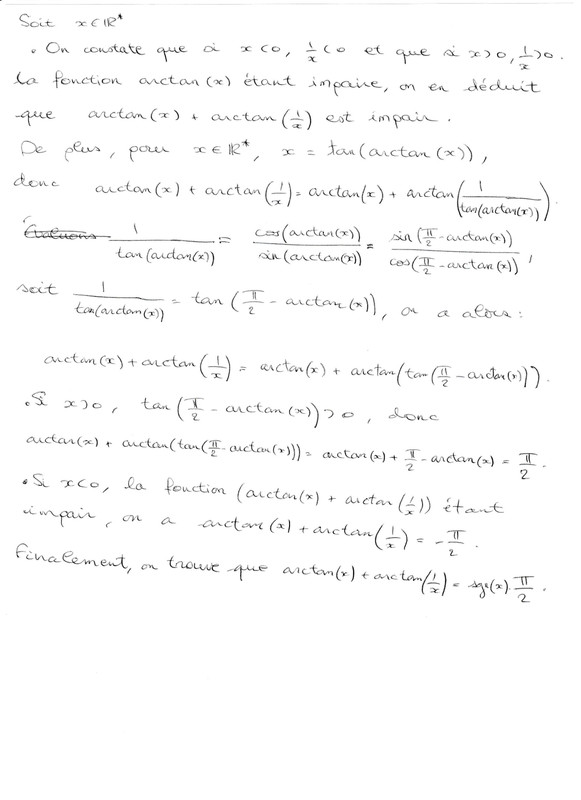 Soit x ∈ ℝ*
• On constate que si x<0, 1/x<0 et que si x>0, 1/x>0.
La fonction arctan(x) étant impaire, on en déduit
que arctan(x) + arctan(1/x) est impair.
De plus, pour x ∈ ℝ*, x = tan(arctan(x)),
donc arctan(x) + arctan(1/x) = arctan(x) + arctan(1/tan(arctan(x)))
1/tan(arctan(x)) = cos(arctan(x))/sin(arctan(x)) = sin(π/2 - arctan(x))/cos(π/2 - arctan(x)),
soit 1/tan(arctan(x)) = tan(π/2 - arctan(x)), on a alors :
arctan(x) + arctan(1/x) = arctan(x) + arctan(tan(π/2 - arctan(x))).
• Si x>0, tan(π/2 - arctan(x))>0, donc
arctan(x) + arctan(tan(π/2 - arctan(x))) = arctan(x) + π/2 - arctan(x) = π/2.
• Si x<0, la fonction (arctan(x) + arctan(1/x)) étant
impair, on a arctan(x) + arctan(1/x) = -π/2.
Finalement, on trouve que arctan(x) + arctan(1/x) = sgn(x).π/2.